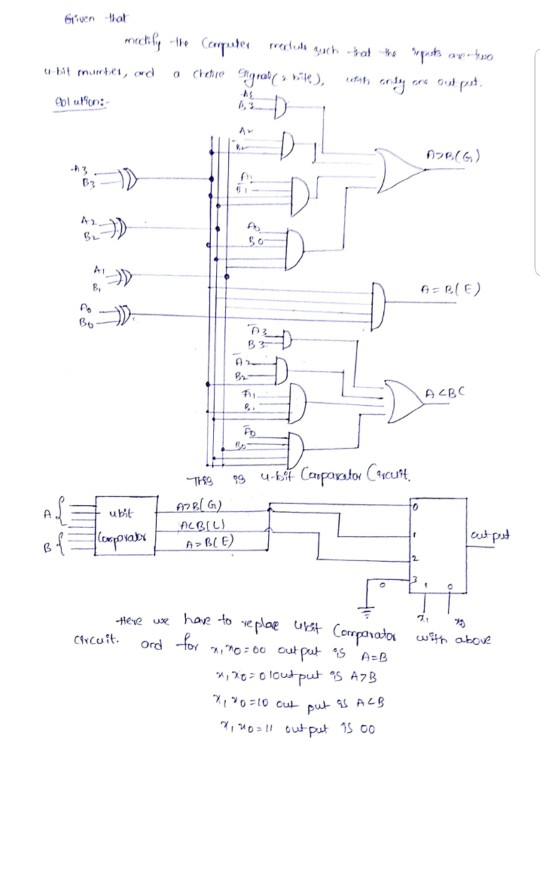 Given that
modify the Computer module such that the inputs are two
4-bit number, and a choice signal (2 bits), with only one output.
Solution:-
A3
B3
A2
B2
A>B(G)
A3
B3
A1
B1
A2
B2
A0
B0
A1
B1
A=B(E)
A0
B0
A3
B3
A2
B2
A<BC
A1
B1
A0
B0
This is 4-bit Comparator Circuit.
A
B
4bit
Comparator
A>B(G)
A<B(L)
A=B(E)
0
1
2
3
0
1 0
output
x1 x0
Here we have to replace 4bit Comparator with above
Circuit. and for x1x0=00 output is A=B
x1x0=01 output is A>B
x1x0=10 out put is A<B
x1x0=11 output is 00